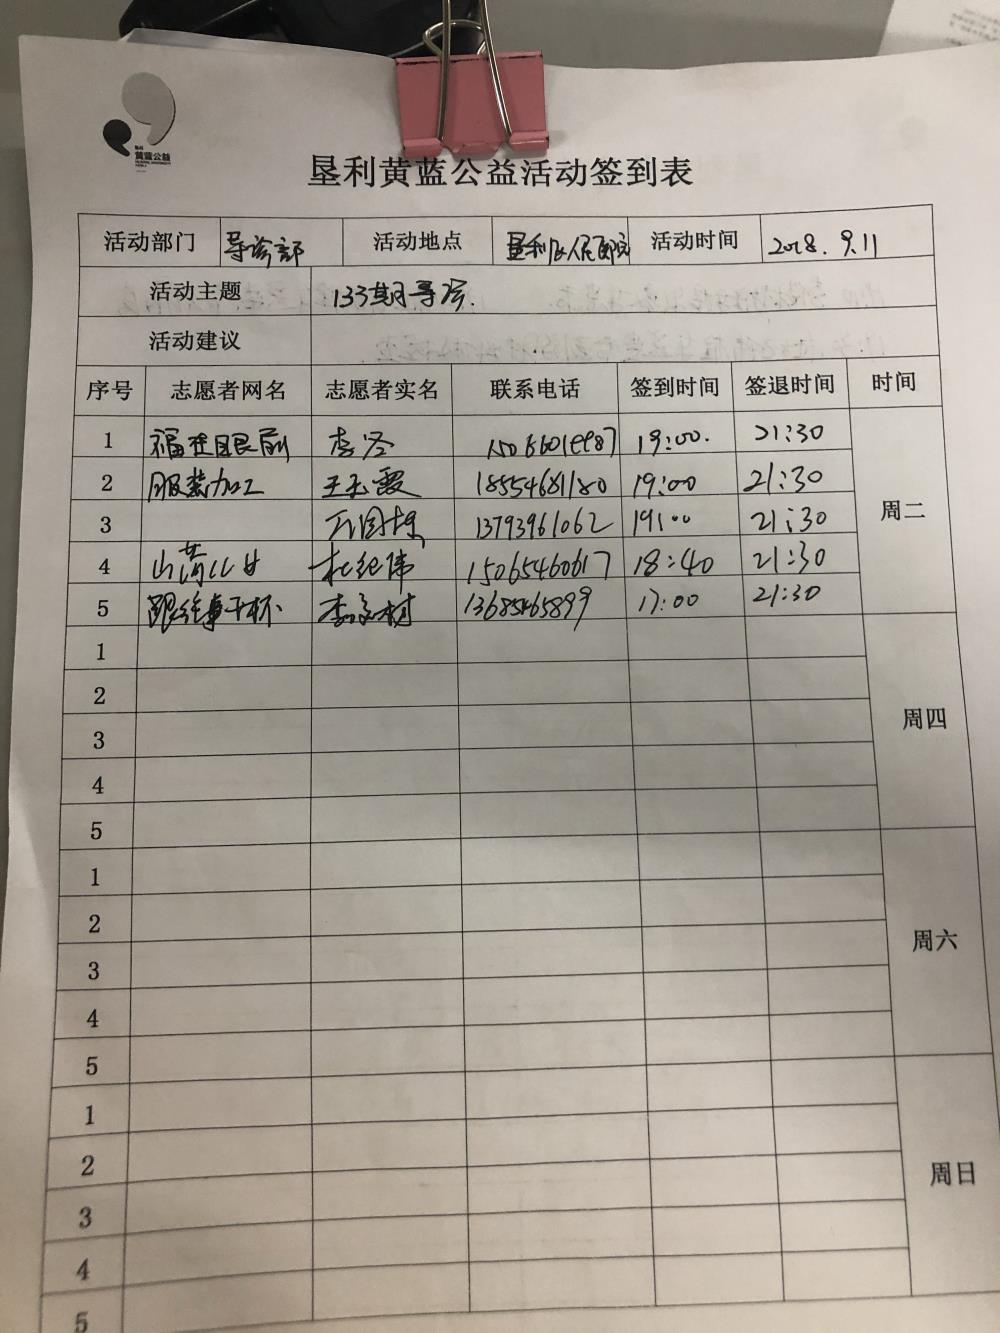 黄蓝公益
垦利黄蓝公益活动签到表
活动部门 导诊部 活动地点 垦利区人民医院 活动时间 2018.9.11
活动主题 133期导诊.
活动建议
序号 志愿者网名 志愿者实名 联系电话 签到时间 签退时间 时间
1 福在眼前 李 19:00. 21:30
2 服装加工 王玉霞 18554681180 19:00 21:30
3 13793961062 19:00 21:30
周二
4 杜纪伟 15065460617 18:40 21:30
5 跟往事干杯 李文树 13685465899 17:00 21:30
1
2
3
周四
4
5
1
2
周六
3
4
5
1
2
周日
3
4
5